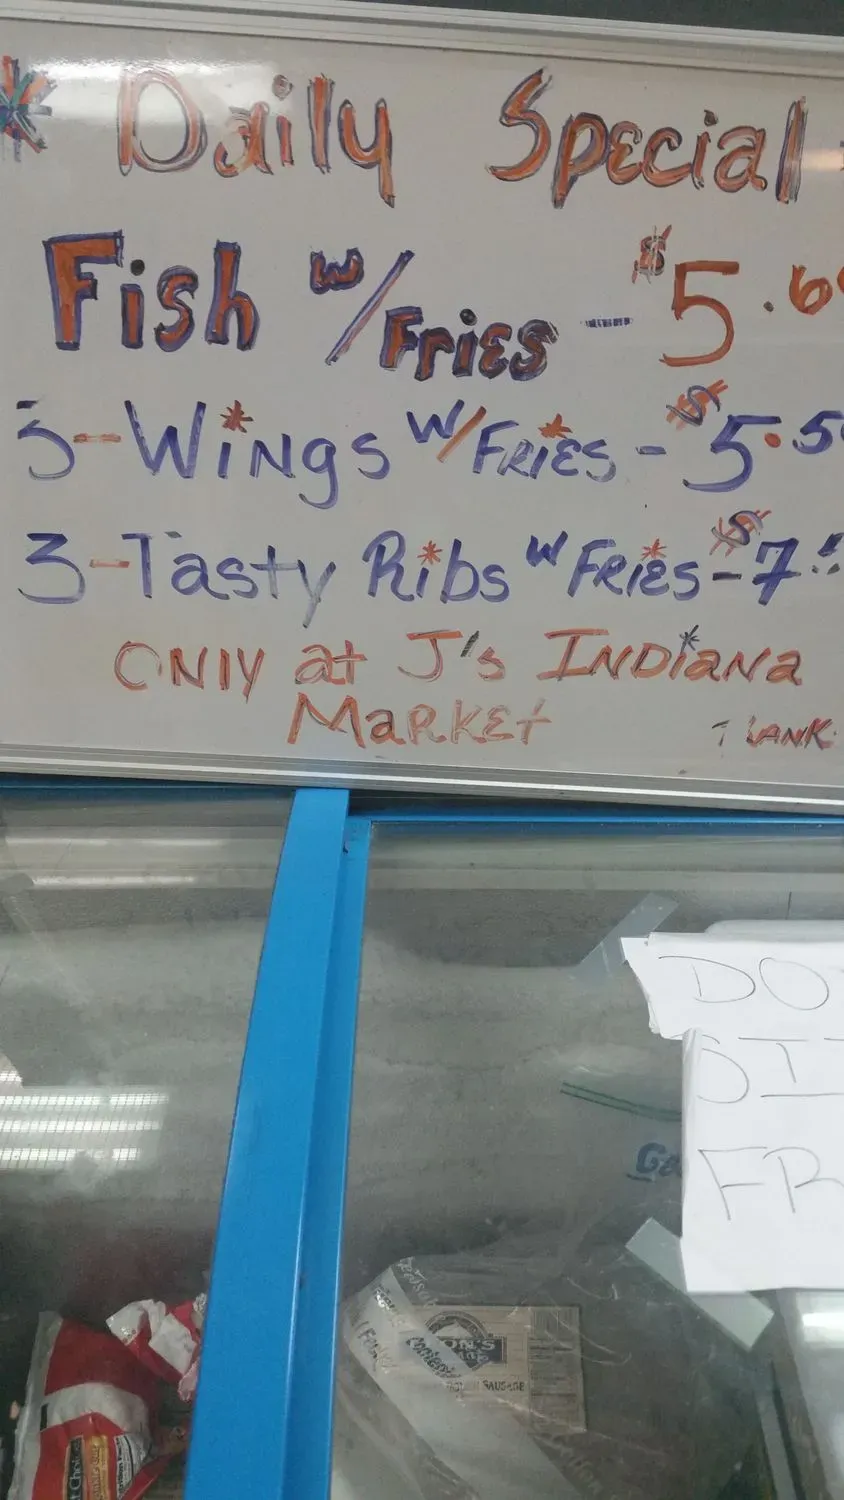 * Daily Special
Fish w/Fries - $5.60
5-Wings w/Fries - $5.5
3-Tasty Ribs w Fries - $7
ONLY at J's INDiANA
MARKEt
DO
SIT
FR
ON'S
SAUSAGE